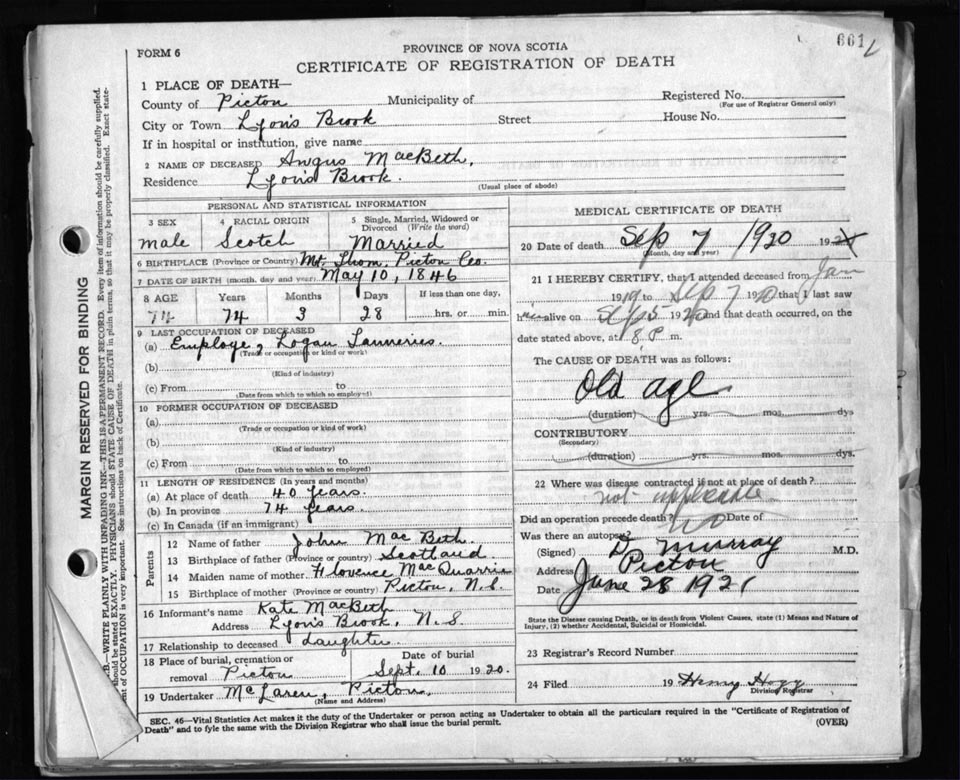 661
FORM 6
PROVINCE OF NOVA SCOTIA
CERTIFICATE OF REGISTRATION OF DEATH
1 PLACE OF DEATH—
County of Picton Municipality of Registered No.
(For use of Registrar General only)
City or Town Lyons Brook Street House No.
If in hospital or institution, give name
2 NAME OF DECEASED Angus MacBeth,
Residence Lyons Brook.
(Usual place of abode)
PERSONAL AND STATISTICAL INFORMATION
3 SEX 4 RACIAL ORIGIN 5 Single, Married, Widowed or Divorced (Write the word)
male Scotch Married
6 BIRTHPLACE (Province or Country) Mt. Thom, Picton Co.
7 DATE OF BIRTH (month, day and year) May 10, 1846
8 AGE Years Months Days If less than one day,
74 74 3 28 hrs. or min.
9 LAST OCCUPATION OF DECEASED
(a) Employe, Logan Tanneries.
(Trade or occupation or kind of work)
(b)
(Kind of industry)
(c) From to
(Date from which to which so employed)
10 FORMER OCCUPATION OF DECEASED
(a)
(Trade or occupation or kind of work)
(b)
(Kind of industry)
(c) From to
(Date from which to which so employed)
11 LENGTH OF RESIDENCE (In years and months)
(a) At place of death 40 years.
(b) In province 74 years.
(c) In Canada (if an immigrant)
Parents
12 Name of father John Mac Beth
13 Birthplace of father (Province or country) Scotland.
14 Maiden name of mother Florence MacQuarrie
15 Birthplace of mother (Province or country) Picton, N.S.
16 Informant's name Kate MacBeth
Address Lyons Brook, N.S.
17 Relationship to deceased daughter
18 Place of burial, cremation or removal Picton Date of burial Sept. 10 1920.
19 Undertaker McLaren, Picton.
(Name and Address)
MEDICAL CERTIFICATE OF DEATH
20 Date of death Sep 7 1920 192
(Month, day and year)
21 I HEREBY CERTIFY, that I attended deceased from Jan
1919 to Sep 7 1920 that I last saw
h alive on Sep 5 1920 and that death occurred, on
date stated above, at 8 P m.
The CAUSE OF DEATH was as follows:
Old age
(duration) yrs. mos. dys
CONTRIBUTORY
(Secondary)
(duration) yrs. mos. dys.
22 Where was disease contracted if not at place of death?
not applicable
Did an operation precede death? No Date of
Was there an autopsy?
(Signed) D Murray M.D.
Address Picton
Date June 28 1921
State the Disease causing Death, or in death from Violent Causes, state (1) Means and Nature of
Injury, (2) whether Accidental, Suicidal or Homicidal.
23 Registrar's Record Number
24 Filed 19 Henry Hogg
Division Registrar
SEC. 46—Vital Statistics Act makes it the duty of the Undertaker or person acting as Undertaker to obtain all the particulars required in the "Certificate of Registration of
Death" and to fyle the same with the Division Registrar who shall issue the burial permit.
(OVER)
MARGIN RESERVED FOR BINDING
N.B.—WRITE PLAINLY WITH UNFADING INK—THIS IS A PERMANENT RECORD. Every item of information should be carefully supplied.
should be stated EXACTLY. PHYSICIANS should STATE CAUSE OF DEATH in plain terms, so that it may be properly classified. Exact state-
ment of OCCUPATION is very important. See instructions on back of Certificate.